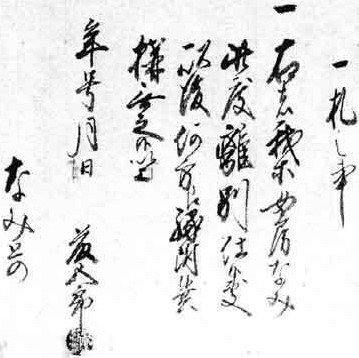 一札之事
一 右者我等女房なみ
此度離別仕候
以後何方縁付候共
構無之候以上
年号月日
なみとの